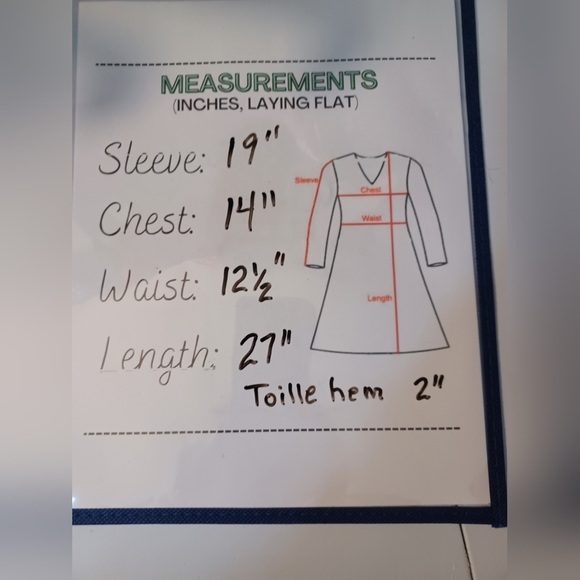 MEASUREMENTS
(INCHES, LAYING FLAT)
Sleeve: 19"
Chest: 14"
Waist: 12½"
Length: 27"
Toille hem 2"
Sleeve
Chest
Waist
Length